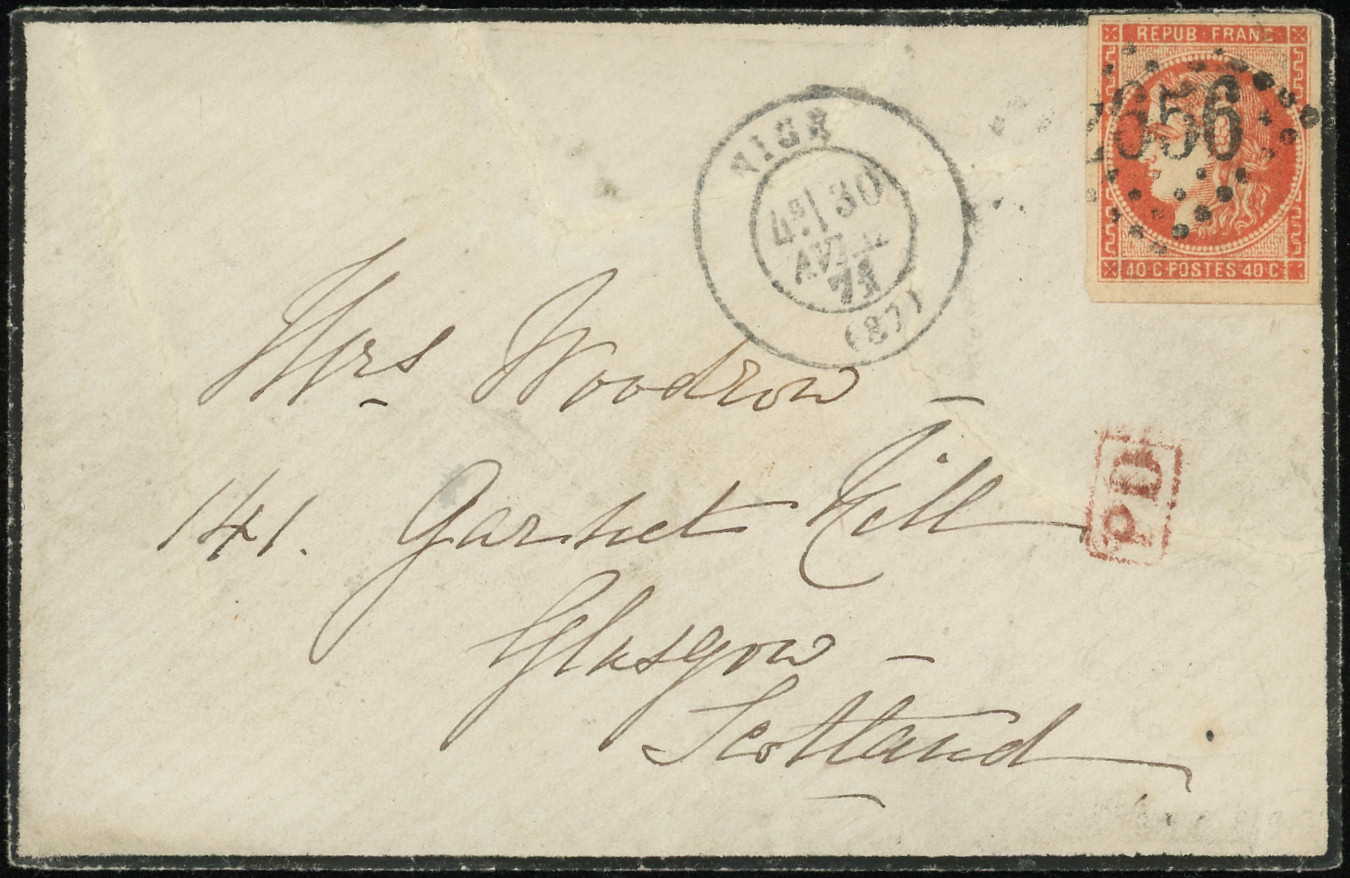 REPUB·FRANC
2656
40 C·POSTES 40 C
NICE
30
AVRIL
71
(87)
Mrs Woodrow –
141. Garnet Hill
P D
Glasgow –
Scotland